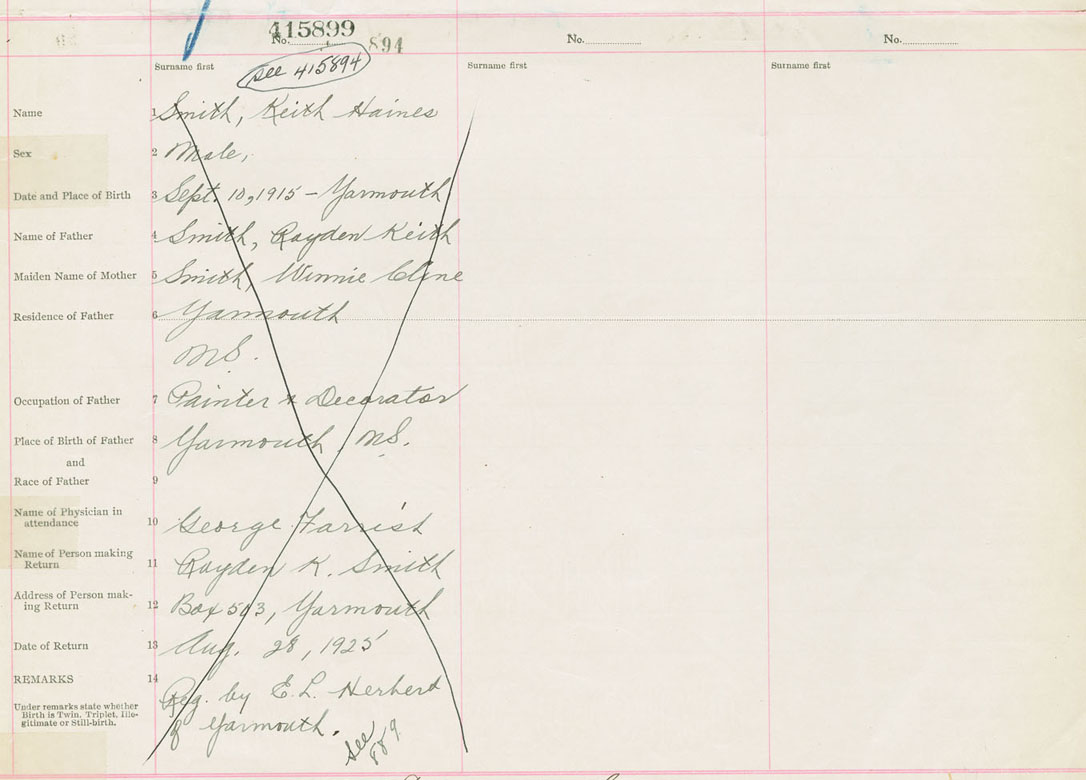 415899
No. No. No.
894
see 415894
Surname first Surname first Surname first
Name 1 Smith, Keith Haines
Sex 2 Male,
Date and Place of Birth 3 Sept. 10, 1915 - Yarmouth
Name of Father 4 Smith, Rayden Keith
Maiden Name of Mother 5 Smith, Winnie Cline
Residence of Father 6 Yarmouth
N.S.
Occupation of Father 7 Painter & Decorator
Place of Birth of Father 8 Yarmouth, N.S.
and
Race of Father 9
Name of Physician in
attendance 10 George Farrish
Name of Person making
Return 11 Rayden K. Smith
Address of Person mak-
ing Return 12 Box 503, Yarmouth
Date of Return 13 Aug. 28, 1925
REMARKS 14
Reg. by E. L. Herberd
Under remarks state whether
Birth is Twin, Triplet, Ille-
gitimate or Still-birth.
of Yarmouth.
see
889